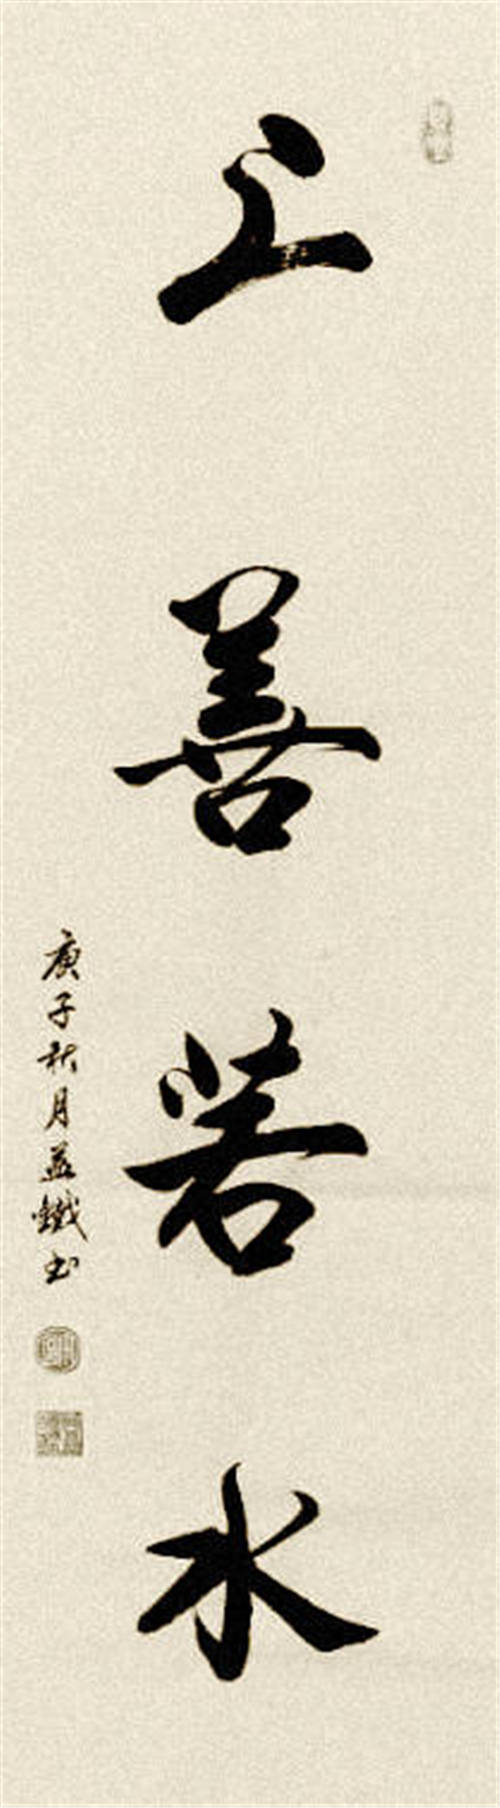 上善若水
庚子秋月益鐵书